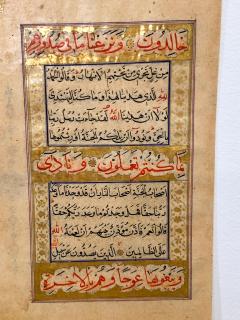 خالدون ونزعنا ما في صدورهم
من غل تجري من تحتهم الانهار وقالوا الحمد
لله الذي هدانا لهذا وما كنا لنهتدي
لولا ان هدانا الله لقد جاءت رسل ربنا
بالحق ونودوا ان تلكم الجنة اورثتموها
بما كنتم تعملون ونادى
اصحاب الجنة اصحاب النار ان قد وجدنا ما وعدنا
ربنا حقا فهل وجدتم ما وعد ربكم حقا
قالوا نعم فاذن مؤذن بينهم ان لعنة الله
على الظالمين الذين يصدون عن سبيل الله
ويبغونها عوجا وهم بالاخرة